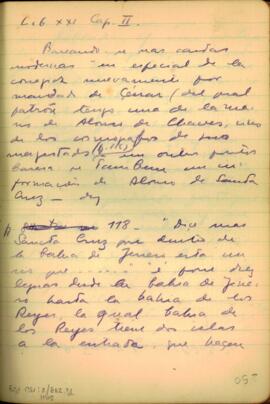 Lib XXI Cap. II
Basando e nas cartas
modernas en especial de la
corregida nuevamente por
mandado de César (del qual
patrón tengo una de la ma
no Alonso de Chaves, uno
de los cosmógrafos de sus
magestades
Tambem um in
formación de Alonso de Santa
Cruz — diz
118 - "Dice mas
Sancta Cruz que dentro de
la bahia de Jenero esta un
rio que ..... é pone diez
leguas desde la bahia de Jene
ro hasta la bahia de los
Reyes, la qual bahia de
los Reyes tiene dos islas
a la entrada, que hacen